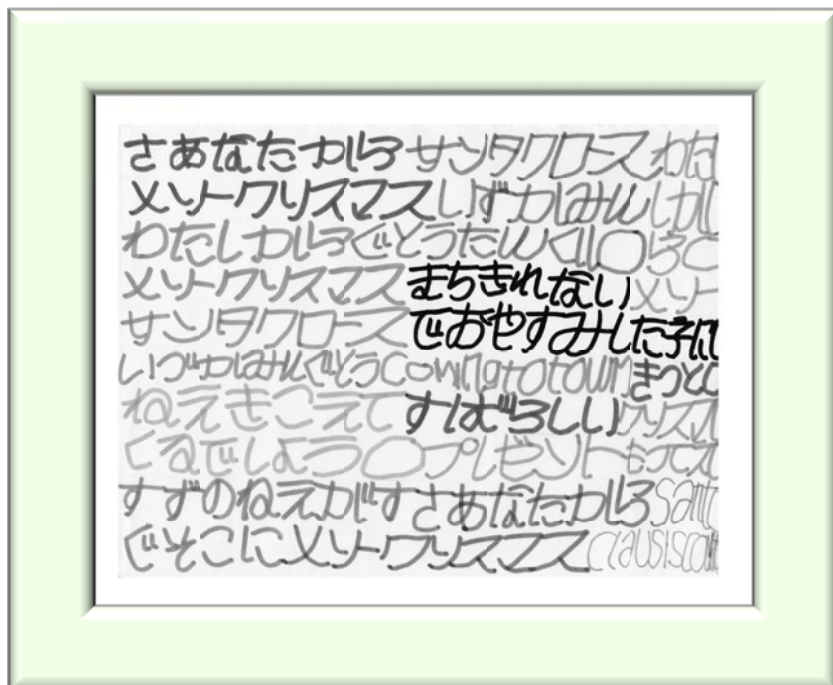 さあなたから サンタクロース わた
メリークリスマス しずかはみんしか
わたしから ぐとうたんくll〇らC
メリークリスマス まちきれない メリー
サンタクロース でおやすみした子に
いづかはみんぐとう comingtotown きっと
ねえきこえて すばらしい クリスマ
くるでしょう〇 プレゼント もって
すずのねえがす さあなたから sant
ぐそこに メリークリスマス clausiscom